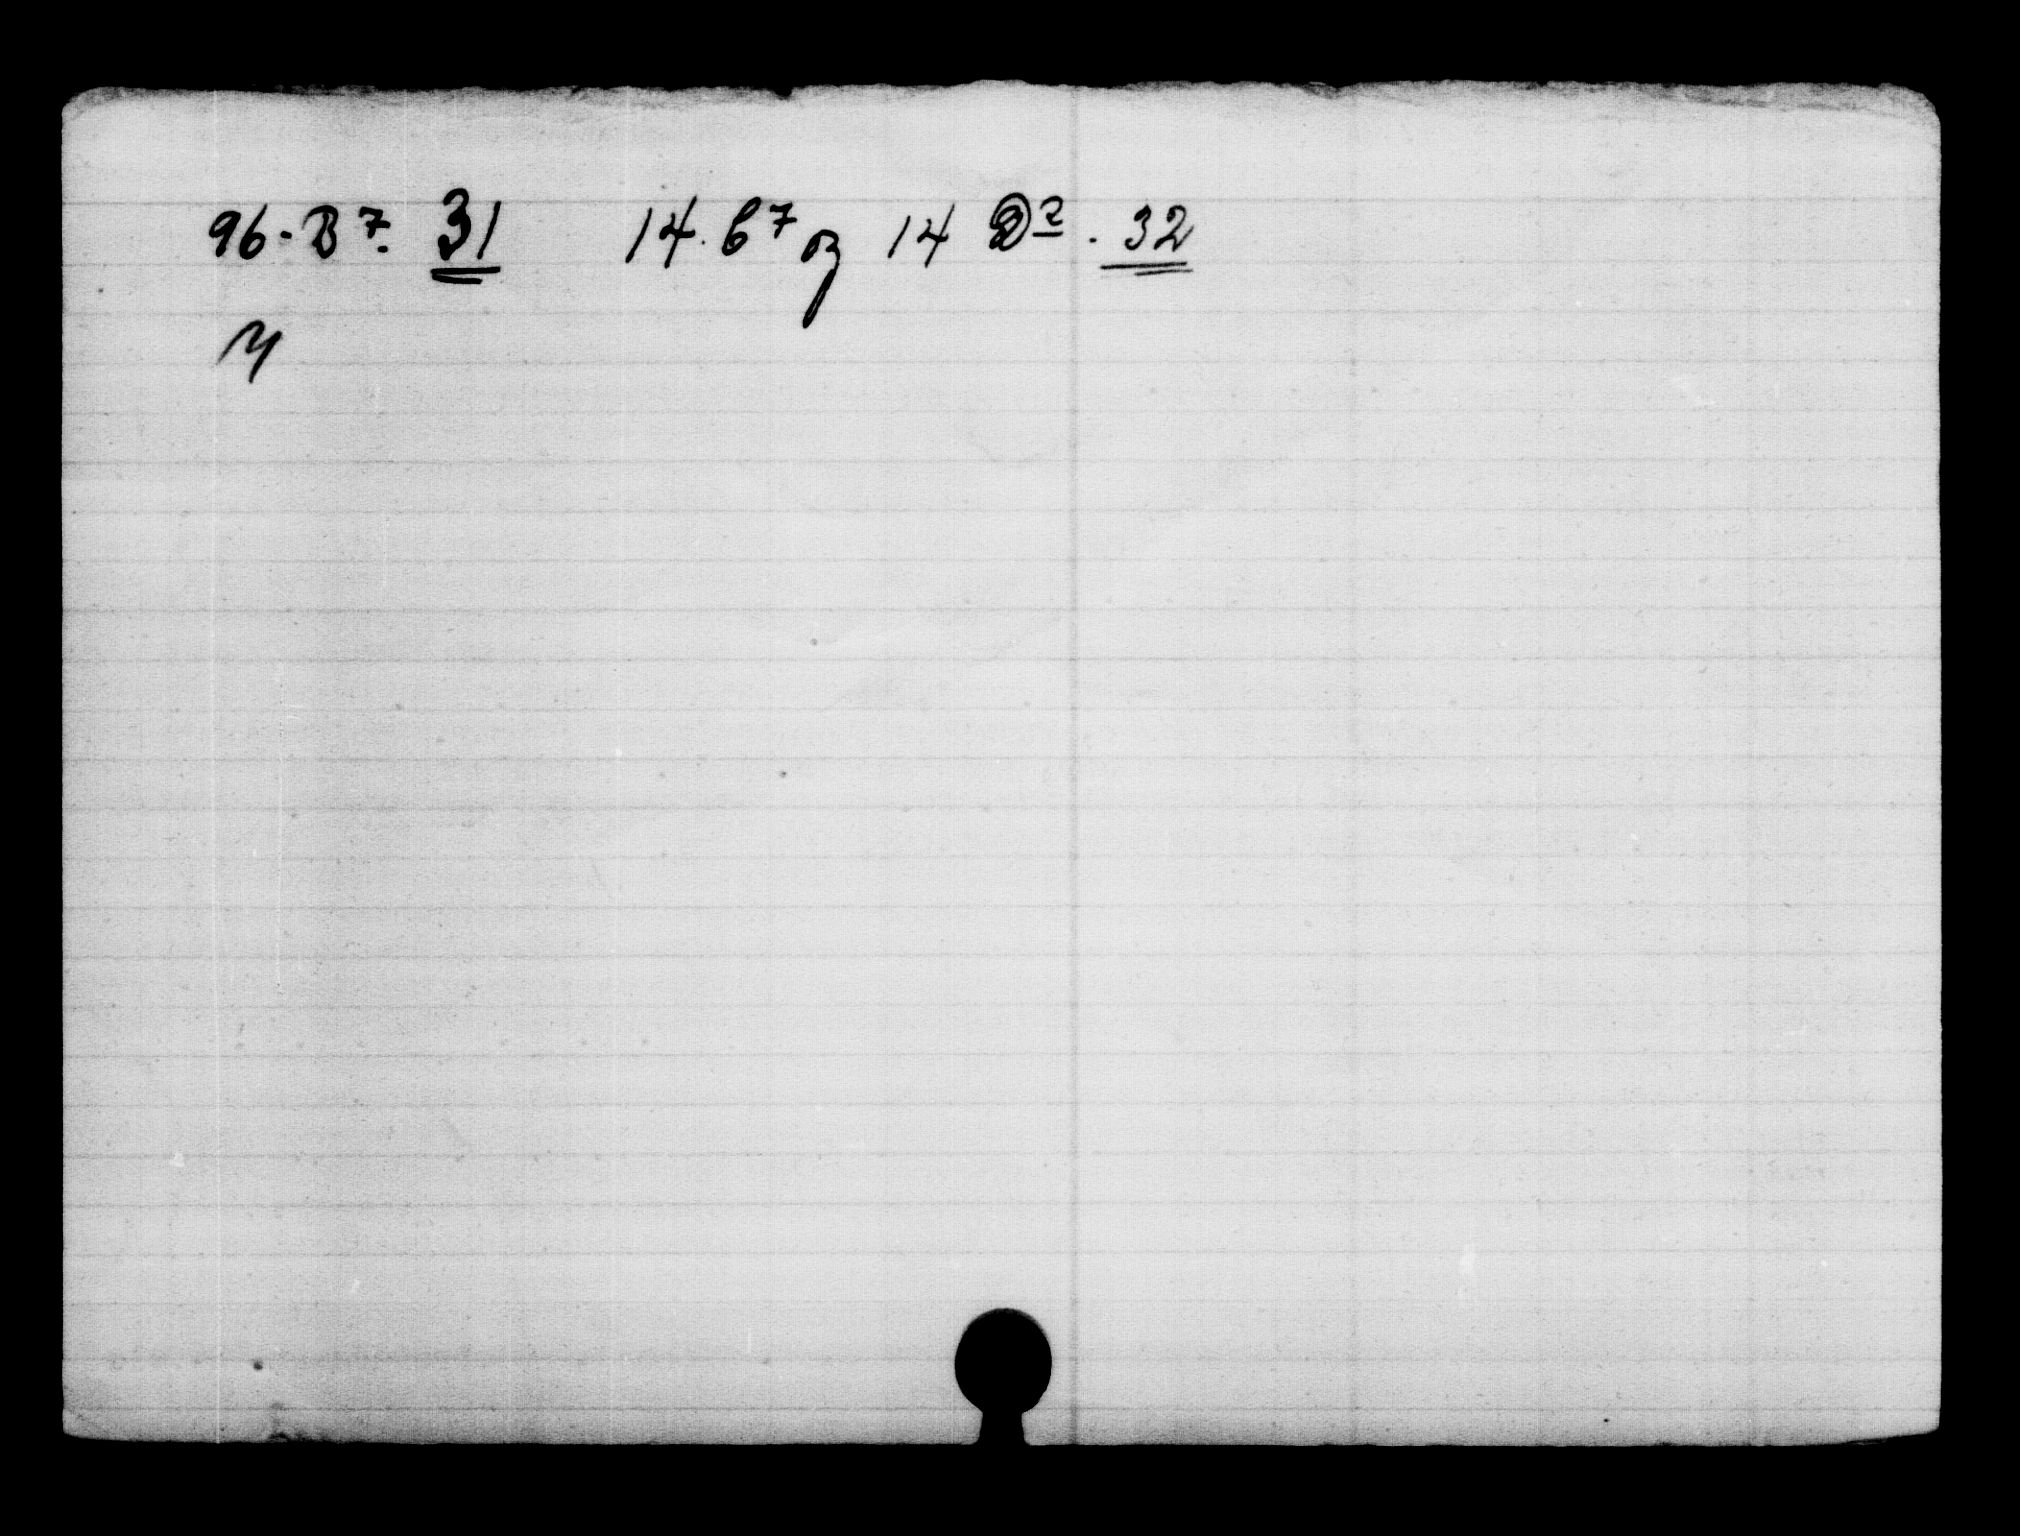 96. B 7. 31 14. B 7 14 D 2. 32